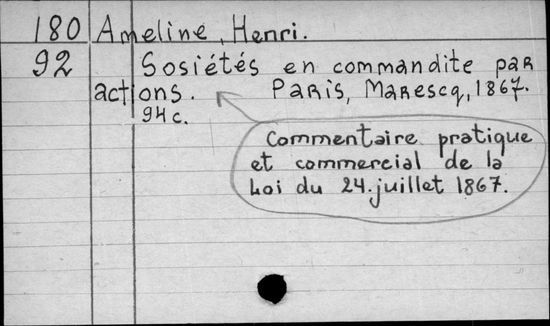 180 Ameline, Henri.
92 Sosiétés en commandite par
actions. Paris, Marescq, 1867.
94 c.
Commentaire pratique
et commercial de la
Loi du 24. juillet 1867.